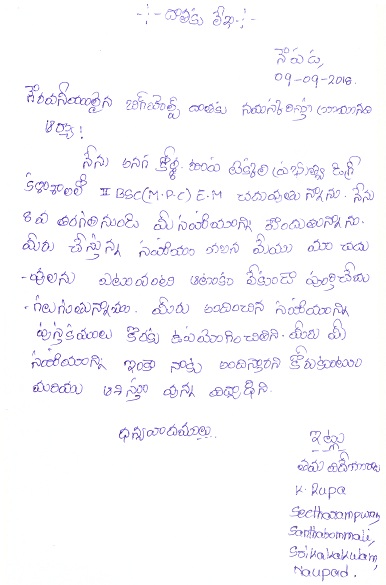 -:- దాతకు లేఖ -:-
నౌపడ,
09-09-2018.
గౌరవనీయులైన దాతకు నమస్కరిస్తూ వ్రాయునది
ఆర్యా!
నేను అనగా కె. రూప టెక్కలి ప్రభుత్వ డిగ్రీ
కళాశాలలో II BSC(M.P.C) E.M చదువుతున్నాను. నేను
8వ తరగతి నుండి మీ సహాయాన్ని పొందుతున్నాను.
మీరు చేస్తున్న సహాయం వలన మేము మా చదు
-వులను ఎటువంటి ఆటంకం లేకుండా పూర్తిచేయ
-గలుగుతున్నాము. మీరు అందించిన సహాయాన్ని
పుస్తకములు కొరకు ఉపయోగించితిని. మీరు మీ
సహాయాన్ని ఇంకా నాకు అందిస్తారని కోరుకుంటూ
మరియు ఆశిస్తూ వున్న విద్యార్థిని.
ధన్యవాదములు..
ఇట్లు
తమ విధేయురాలు
K. Rupa
Seetharampuram,
Santhabommali,
Srikakakulam,
Naupad.